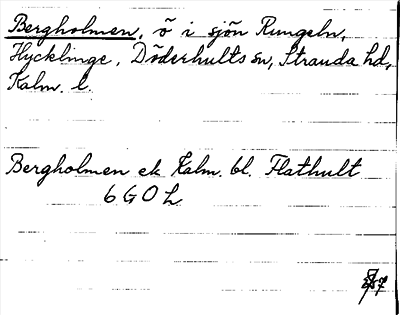 Bergholmen, ö i sjön Rungeln,
Hycklinge, Döderhults sn, Stranda hd,
Kalm. l.
Bergholmen ek Kalm. bl. Flathult
6 G O L